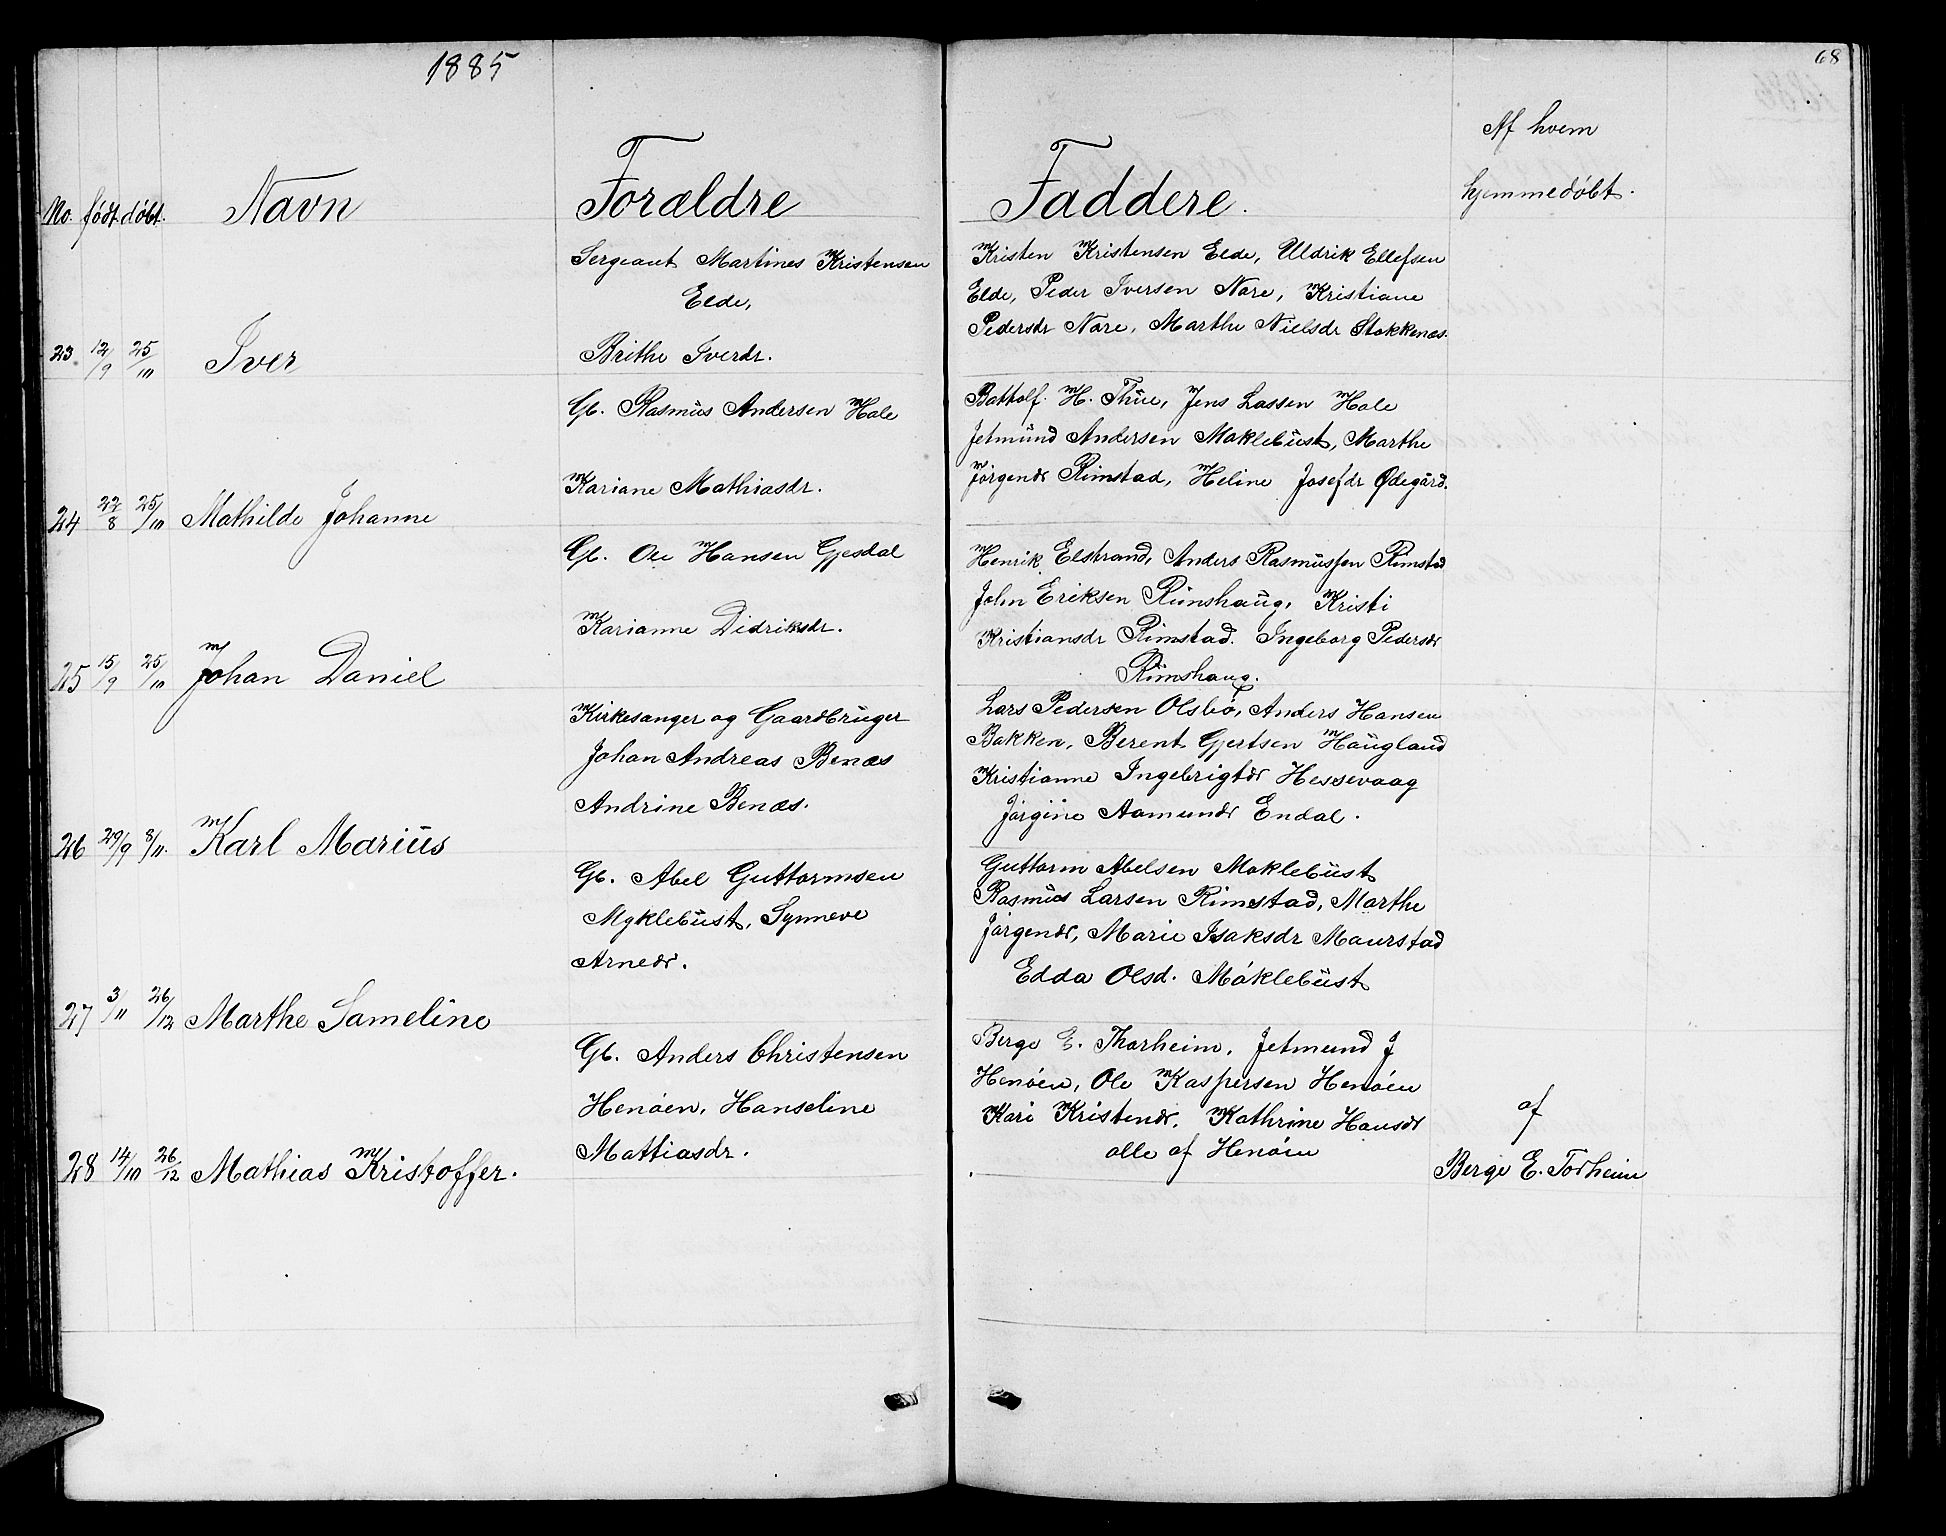 1885
68
No. født. døbt. Navn Forældre Faddere. Af hvem
hjemmedøbt.
Sergeant Martines Kristensen
Elde,
23 12/9 25/10 Iver Brithe Iverdr.
Kristen Kristensen Elde, Uldrik Ellefsen
Elde, Peder Iversen Nore, Kristiane
Pedersdr Nore, Marthe Nielsdr Stokkenæs.
Gb. Rasmus Andersen Hole
24 22/8 25/10 Mathilde Johanne Kariane Mathiasdr.
Battolf. H. Thue, Jens Lassen Hole
Jetmund Andersen Moklebust, Marthe
Jörgendr Rimstad, Heline Josefdr Ødegård.
Gb. Ole Hansen Gjesdal
25 15/9 25/10 Johan Daniel Karianne Didriksdr.
Henrik Elstrand, Anders Rasmussen Rimstad
John Eriksen Rimshaug, Kristi
Kristiansdr Rimstad. Ingeborg Pedersdr
Rimshaug.
Kirkesanger og Gaardbruger
Johan Andreas Benæs
26 29/9 8/11. Karl Marius Andrine Benæs.
Lars Pedersen Olsbø, Anders Hansen
Bakken, Berent Gjertsen Haugland
Kristianne Ingebrigtdr Hessevaag
Jörgine Aamundr Endal.
Gb. Abel Guttormsen
Myklebust, Synneve
27 3/11 26/12 Marthe Sameline Arnedr.
Guttorm Abelsen Moklebust
Rasmus Larsen Rimstad, Marthe
Jörgendr, Marie Isaksdr Maurstad
Edda Olsd. Möklebust
Gb. Anders Christensen
Henöen, Hanseline
28 14/10 26/12 Mathias Kristoffer. Mattiasdr.
Berge E. Thorheim, Jetmund J
Henöen, Ole Kaspersen Henöen
Kari Kristendr, Kathrine Hansdr
alle af Henöen
af
Berge E. Torheim